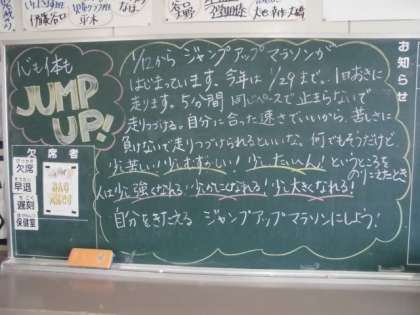 心も体も
JUMP
UP!
お知らせ
1/12から ジャンプアップマラソンが
はじまっています。今年は 1/29まで。1日おきに
走ります。5分間 同じペースで 止まらないで
走りつづける。自分に合った速さでいいから、苦しさに
負けないで走りつづけられるといいな。何でもそうだけど
少し苦しい! 少しむずかしい! 少したいへん! というところを
のりこえたとき
人は少し強くなれる! 少しかしこくなれる! 少し大きくなれる!
自分をきたえる ジャンプアップマラソンにしよう!
欠席者
欠席
早退
遅刻
保健室